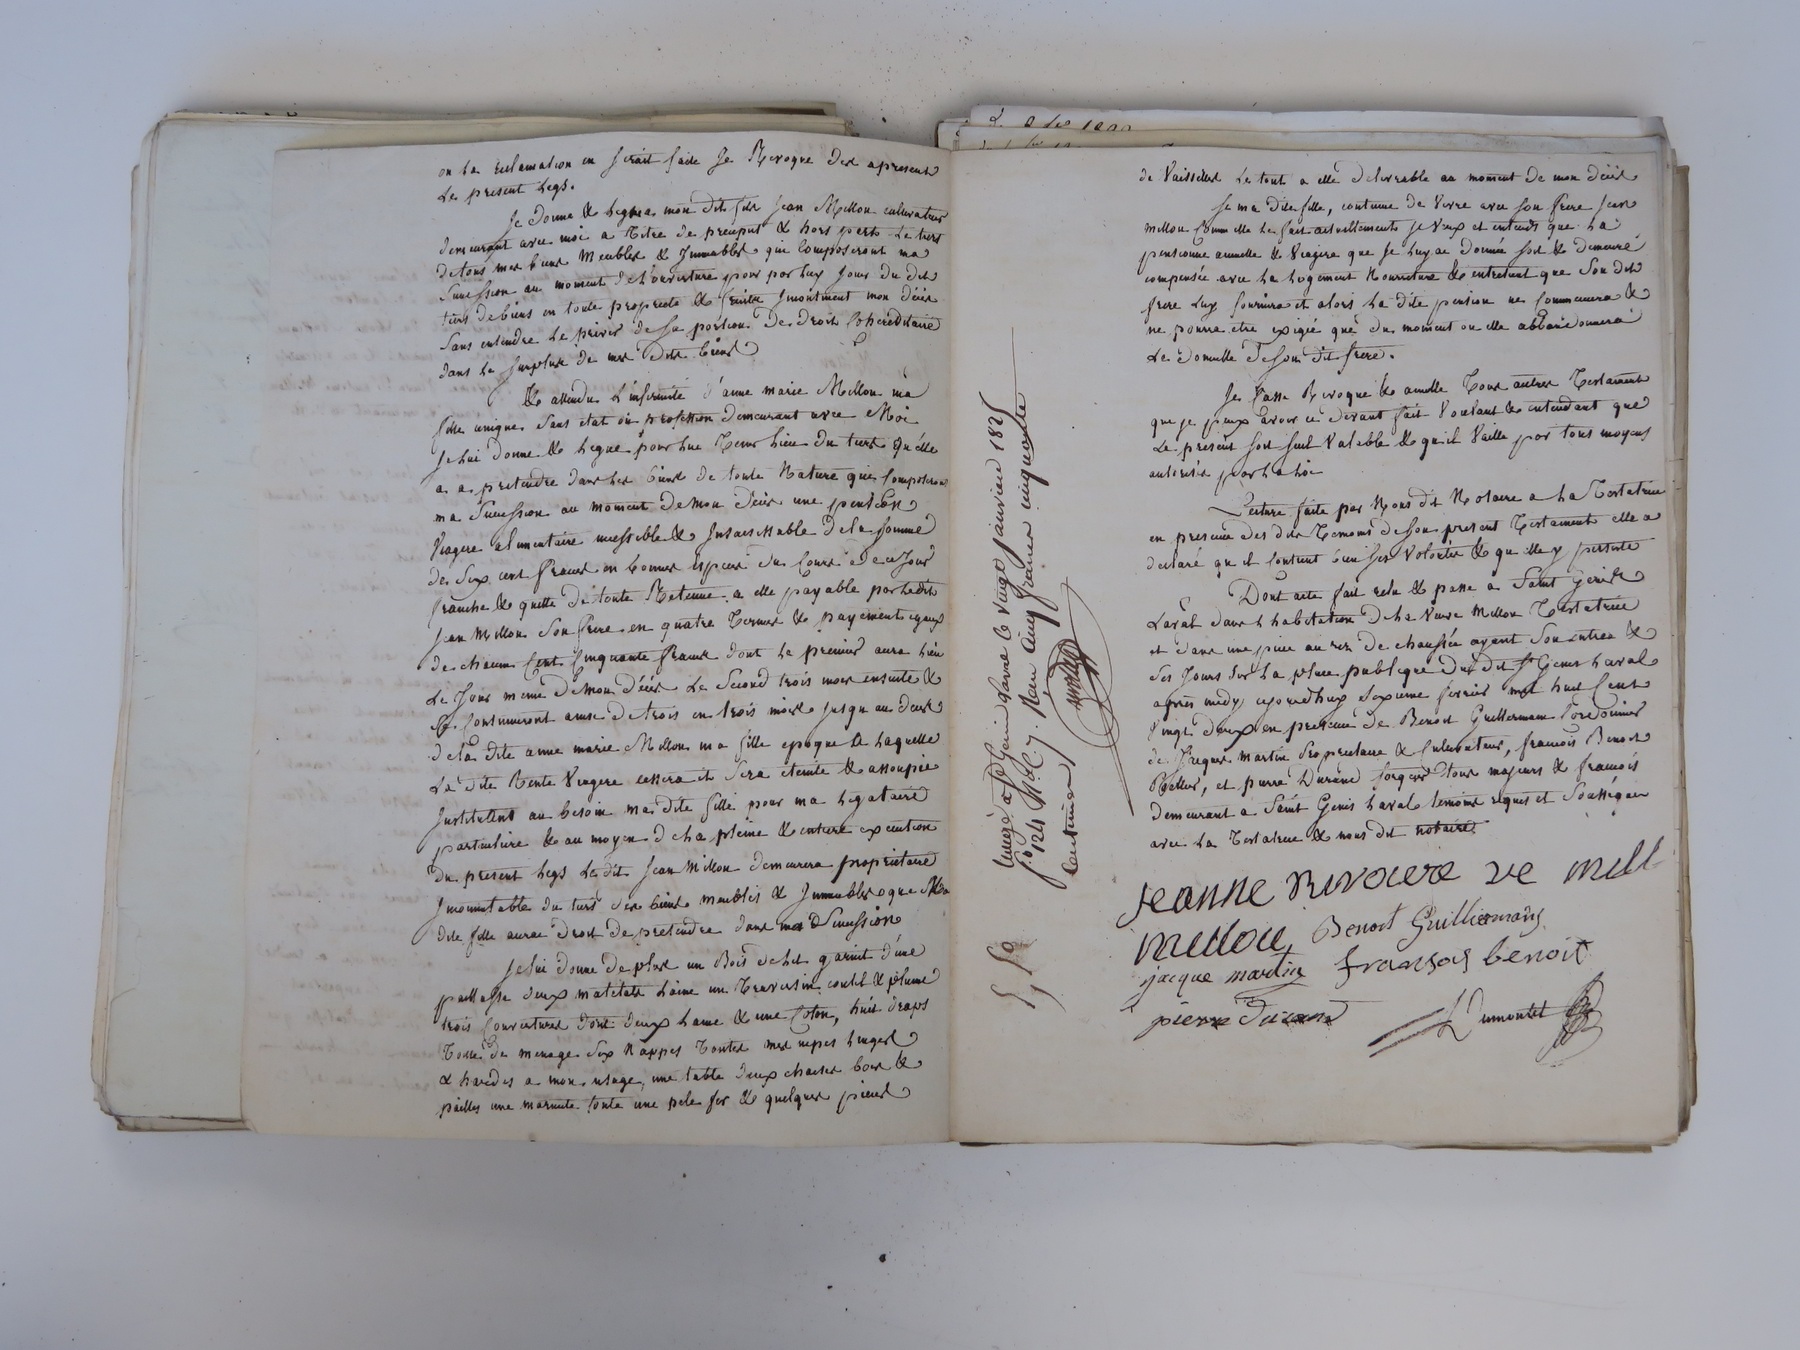 ou la reclamation en serait faite Je Revoque des apresent
Le present Legs.
Je donne & Legue a mon dit fils Jean Millon cultivateur
demeurant avec moi a Titre de preciput & hors part Le tiers
de tous mes biens Meubles & Immeubles qui Composeront ma
Succession au moment de L'ouverture pour par luy Jouir du dit
tiers de biens en toute propriete &
Sans entendre Le priver de Sa portion de droit Cohereditaire
dans Le Surplus de mes dits biens
Et attendu L'infirmité d'anne marie Millon ma
fille unique Sans etat ou profession demeurant avec Moi
Je lui donne & Legue pour luy Tenir Lieu du tiers qu'elle
a a pretendre dans Les biens de toute Nature qui Composeront
ma Succession au moment de mon deces une pension
Viagere alimentaire incessible & Insaisissable de la somme
de Six cent francs en bonnes especes du Cours de ce Jour
franche & quitte de toute Retenue a elle payable par Le dit
Jean Millon Son frere en quatre Termes & payements egaux
de chacun Cent Cinquante francs dont Le premier aura Lieu
Le Jour meme de mon deces Le Second trois mois ensuite &
Se Continueront ainsi de trois en trois mois Jusqu au deces
de La dite anne marie Millon ma fille epoque a Laquelle
La dite Rente Viagere cessera et Sera eteinte & assoupie
Instituant au besoin ma dite fille pour ma Legataire
particuliere & au moyen de La pleine & entiere execution
du present Legs Le dit Jean Millon demeurera proprietaire
Incommutable du tiers des biens meubles & Immeubles que Ma
dite fille aurai droit de pretendre dans ma Succession
Je lui donne de plus un Bois de lit garni d'une
paillasse deux matelats Laine un Traversin coutil & plume
trois Couvertures dont deux Laine & une Coton, huit draps
Toile de menage Six Nappes Toutes mes nipes Linges
& hardes a mon usage, une table deux chaises bois &
pailles une marmite fonte une pele fer & quelques pieces
Enregé a St Genis Laval le vingt janvier 1825
fo 124 Ro C. 7. Reçu cinq francs cinquante
centimes
de Vaisselle Le tout a elle delivrable au moment de mon deces
Si ma dite fille, continue de Vivre avec Son frere Jean
Millon Comm elle Le fait actuellement Je Veux et entends que La
pensionne annuelle & Viagere que Je Luy ai donnée soit & demeure
compensée avec La Logement Nourriture & entretient que Son dit
frere Luy fournira et alors La dite pension ne Commencera &
ne pourra etre exigée que du moment ou elle abbandonnera
Le domicille de Son dit frere.
Je Casse Revoque & annulle Tous autres Testament
que je peux avoir ci devant fait Voulant & entendant que
Le present soit seul Valable & qu'il Vaille par tous moyens
autorisés par La Loi
Lecture faite par Nous dit Notaire a La Testatrice
en presence des dits Temoins de Son present Testament elle a
declaré qu il Contient bien Ses Volontés & qu elle y persiste
Dont acte fait Relu & passé a Saint Genis
Laval dans L'habitation de La Veuve Millon Testatrice
et dans une piece au rez de chaussée ayant Son entrée &
Ses Jours Sur La place publique du dit St Genis Laval
apres midy aujourdhuy Sixieme fevrier mil huit Cent
Vingt deux en presence de Benoit Guillermain Cordonnier
de Jacques Martin Proprietaire & Cultivateur, francois Benoit
, et pierre Durand forgeur tous majeurs & francois
demeurant a Saint Genis Laval temoins requis et Soussignés
avec La Testatrice & nous dit notaire.
Jeanne Rivoiere ve mill
millon Benoit Guillermain
jacque martin fransois benoit
pierre durand Dumontet